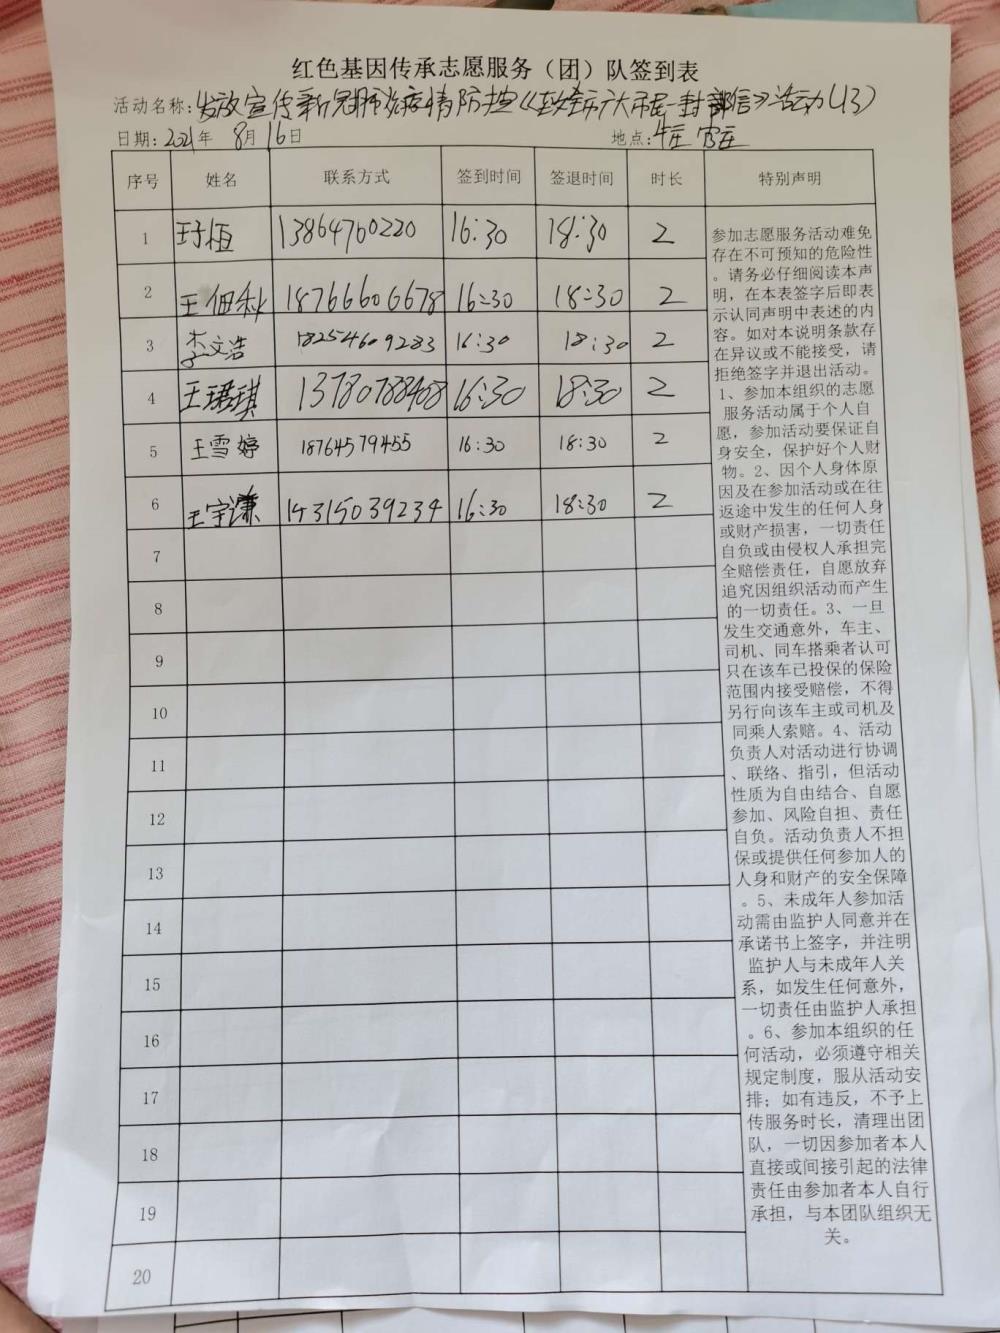 红色基因传承志愿服务（团）队签到表
活动名称：发放宣传新冠肺炎疫情防控《致全市广大市民一封信》活动（13）
日期：2021年 8月16日 地点：
序号 姓名 联系方式 签到时间 签退时间 时长 特别声明
1 13864760220 16:30 18:30 2
2 王佃秋 18766606678 16:30 18:30 2
3 李文浩 18254609283 16:30 18:30 2
4 王珺琪 13780788408 16:30 18:30 2
5 王雪婷 18764579455 16:30 18:30 2
6 王宇谦 16:30 18:30 2
7
8
9
10
11
12
13
14
15
16
17
18
19
20
参加志愿服务活动难免
存在不可预知的危险性
。请务必仔细阅读本声
明，在本表签字后即表
示认同声明中表述的内
容。如对本说明条款存
在异议或不能接受，请
拒绝签字并退出活动。
1、参加本组织的志愿
服务活动属于个人自
愿，参加活动要保证自
身安全，保护好个人财
物。2、因个人身体原
因及在参加活动或在往
返途中发生的任何人身
或财产损害，一切责任
自负或由侵权人承担完
全赔偿责任，自愿放弃
追究因组织活动而产生
的一切责任。3、一旦
发生交通意外，车主、
司机、同车搭乘者认可
只在该车已投保的保险
范围内接受赔偿，不得
另行向该车主或司机及
同乘人索赔。4、活动
负责人对活动进行协调
、联络、指引，但活动
性质为自由结合、自愿
参加、风险自担、责任
自负。活动负责人不担
保或提供任何参加人的
人身和财产的安全保障
。5、未成年人参加活
动需由监护人同意并在
承诺书上签字，并注明
监护人与未成年人关
系，如发生任何意外，
一切责任由监护人承担
。6、参加本组织的任
何活动，必须遵守相关
规定制度，服从活动安
排；如有违反，不予上
传服务时长，清理出团
队，一切因参加者本人
直接或间接引起的法律
责任由参加者本人自行
承担，与本团队组织无
关。